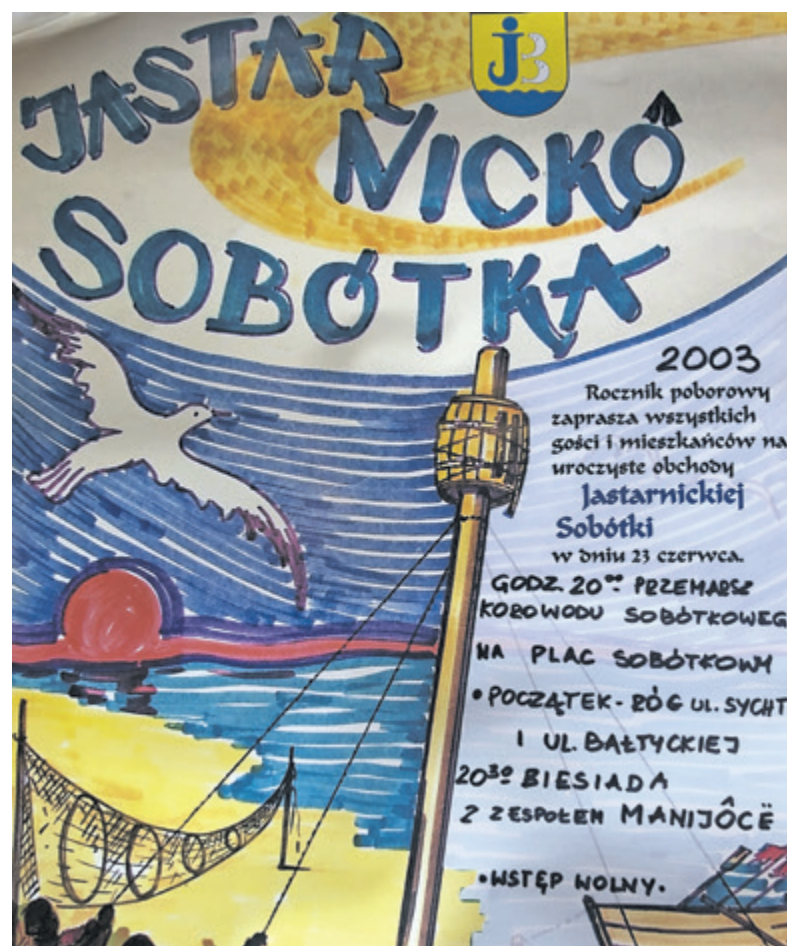 JASTAR
NICKÔ
SOBÓTKA
JB
2003
Rocznik poborowy
zaprasza wszystkich
gości i mieszkańców na
uroczyste obchody
Jastarnickiej
Sobótki
w dniu 23 czerwca.
GODZ. 20°° PRZEMARSZ
KOROWODU SOBÓTKOWEG
NA PLAC SOBÓTKOWY
• POCZĄTEK - RÓG UL. SYCHT
I UL. BAŁTYCKIEJ
20³⁰ BIESIADA
Z ZESPOŁEM MANIJÔCË
• WSTĘP WOLNY.